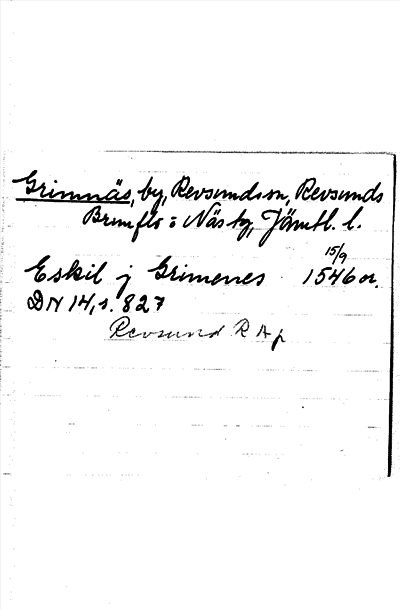 Grimnäs, by, Revsundssn, Revsunds
Brunflo o Näs tg, Jämtl. l.
15/9
Eskil j Grimenes 1546 or.
DN 14, s. 827
Revsund R A p